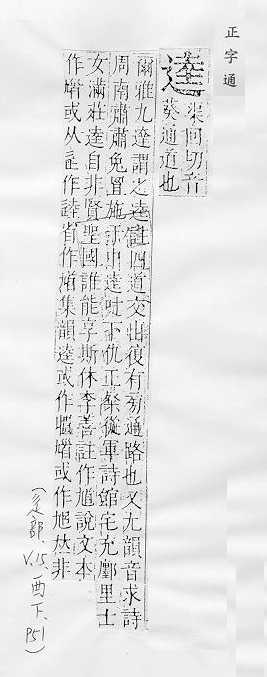 正字通
逵
渠回切音
葵通道也
爾雅九達謂之逵註四道交出復有旁通路也又尤韻音求詩
周南肅肅兔罝施于中逵叶下仇王粲從軍詩館宅充廛里士
女滿莊逵自非賢聖國誰能享斯休李善註作馗說文本
作馗或从辵作逵省作馗集韻逵或作
或作旭𠀤非
(辵部, V.15, 酉下, P51)